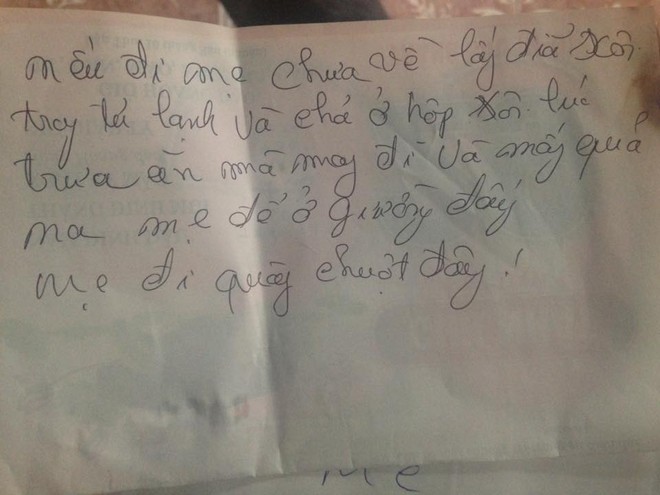 nếu đi mẹ chưa về lấy điã xôi
troy tủ lạnh và chả ở hộp xôi lúc
trưa ăn mà may đi và mấy quả
na mẹ để ở giường đấy
mẹ đi quầy chuột đây!
mẹ